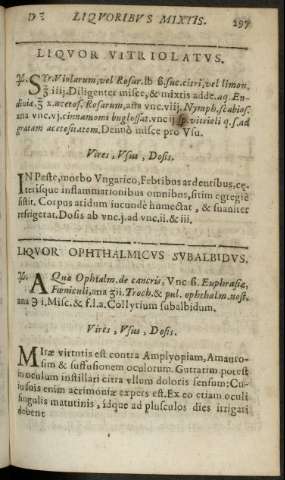 DE LIQVORIBVS MIXTIS. 297
LIQVOR VITRIOLATVS.
℞. STr. Violarum, vel Rosar. ℔ ß. suc. citri, vel limon.
℥ iiij. Diligenter misce, & mixtis adde. aq. En-
diuiæ. ℥ x. acetos. Rosarum, ana vnc. viij. Nymph. scabios.
ana vnc. vj. cinnamomi buglossat. vncij. sp. vitrioli q. s. ad
gratam acetositatem. Denuò misce pro Vsu.
Vires, Vsus, Dosis.
IN Peste, morbo Vngarico, Febribus ardentibus, cę-
terisque inflammationibus omnibus, sitim egregiè
sistit. Corpus aridum iucundè humectat, & suauiter
refrigerat. Dosis ab vnc. j. ad vnc. ii. & iii.
LIQVOR OPHTHALMICVS SVBALBIDVS.
℞. AQuæ Ophtalm. de cancris, Vnc ß. Euphrasiæ,
Fœniculi, ana ʒii. Troch. & pul. ophthalm. nost.
ana ℈ i, Misc. & f. l. a. Collyrium subalbidum.
Vires, Vsus, Dosis.
MIræ virtutis est contra Amplyopiam, Amauro-
sim & suffusionem oculorum. Guttatim. potest
in oculum instillari citra vllum doloris sensum: Cu-
iusuis enim acrimoniæ expers est. Ex eo etiam oculi
singulis matutinis, idque ad plusculos dies irrigari
debent